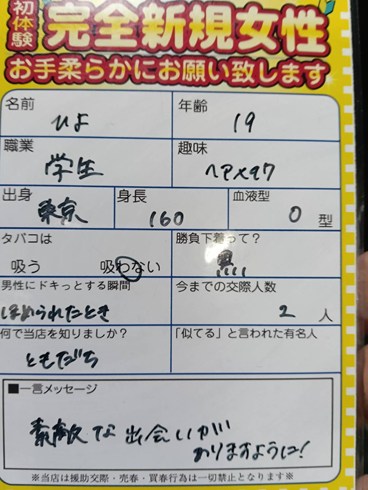 初体験
完全新規女性
お手柔らかにお願い致します
名前 ひよ
年齢 19
職業 学生
趣味 ヘアメイク
出身 東京
身長 160
血液型 O 型
タバコは 吸う 吸わない
勝負下着って? 黒
男性にドキっとする瞬間 ほめられたとき
今までの交際人数 2 人
何で当店を知りましたか? ともだち
「似てる」と言われた有名人
■一言メッセージ
素敵な出会いが
ありますように!
※当店は援助交際・売春・買春行為は一切禁止となります※